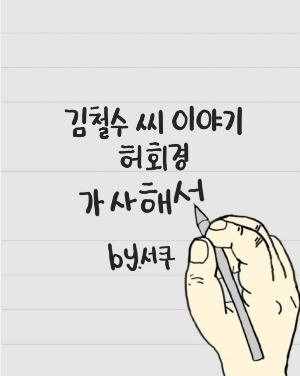 김철수 씨 이야기
허회경
가사해서
by.서쿠